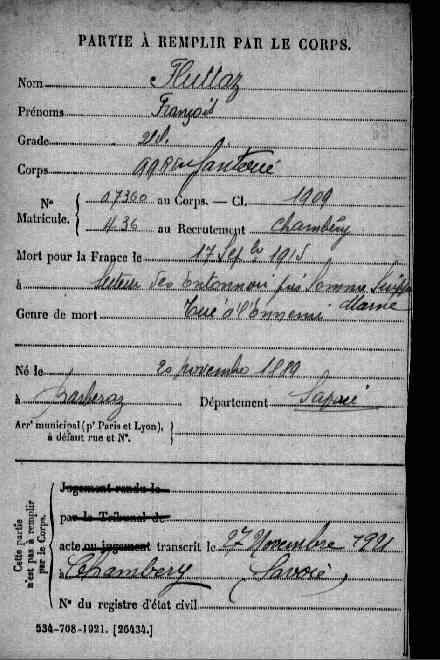 PARTIE À REMPLIR PAR LE CORPS.
Nom Fluttaz
Prénoms François
Grade 2e cl.
Corps Infanterie
Nº Matricule. { 07360 au Corps. — Cl. 1909
436 au Recrutement Chambéry
Mort pour la France le 17 Sepbre 1915
à Secteur des Entonnoirs près Somme Suippe
Marne
Genre de mort Tué à l'Ennemi
Né le 20 novembre 1889
à Barberaz Département Savoie
Arrt municipal (pr Paris et Lyon), à défaut rue et Nº. }
Cette partie n'est pas à remplir par le Corps.
Jugement rendu le
par le Tribunal de
acte ou jugement transcrit le 27 Novembre 1921
Chambéry Savoie
Nº du registre d'état civil
534-708-1921. [26434.]